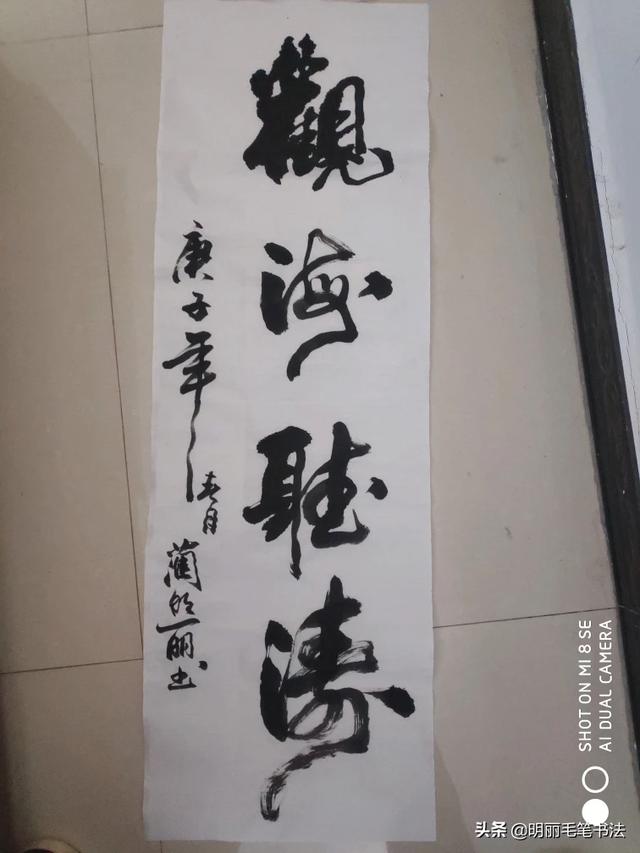 觀海聽濤
庚子年春月
明书
SHOT ON MI 8 SE
AI DUAL CAMERA
头条 @明丽毛笔书法